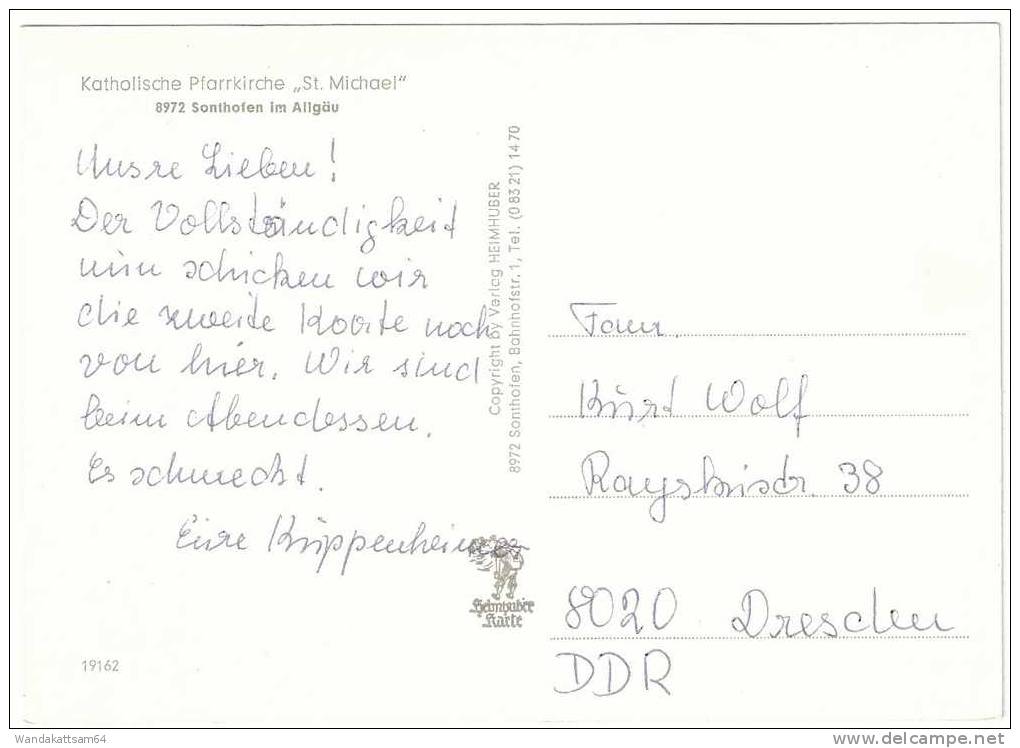 Katholische Pfarrkirche „St. Michael“
8972 Sonthofen im Allgäu
Unsre Lieben!
Der Vollständigkeit
nun schicken wir
die zweite Kaarte noch
von hier. Wir sind
beim Abendessen.
Es schmeckt.
Eure Kuppenheimer
Copyright by Verlag HEIMHUBER
8972 Sonthofen, Bahnhofstr. 1, Tel. (0 83 21) 14 70
Heimhuber
Karte
Fam.
Kurt Wolf
38
8020 Dresden
DDR
19162
Wandakattsam64
www.delcampe.net